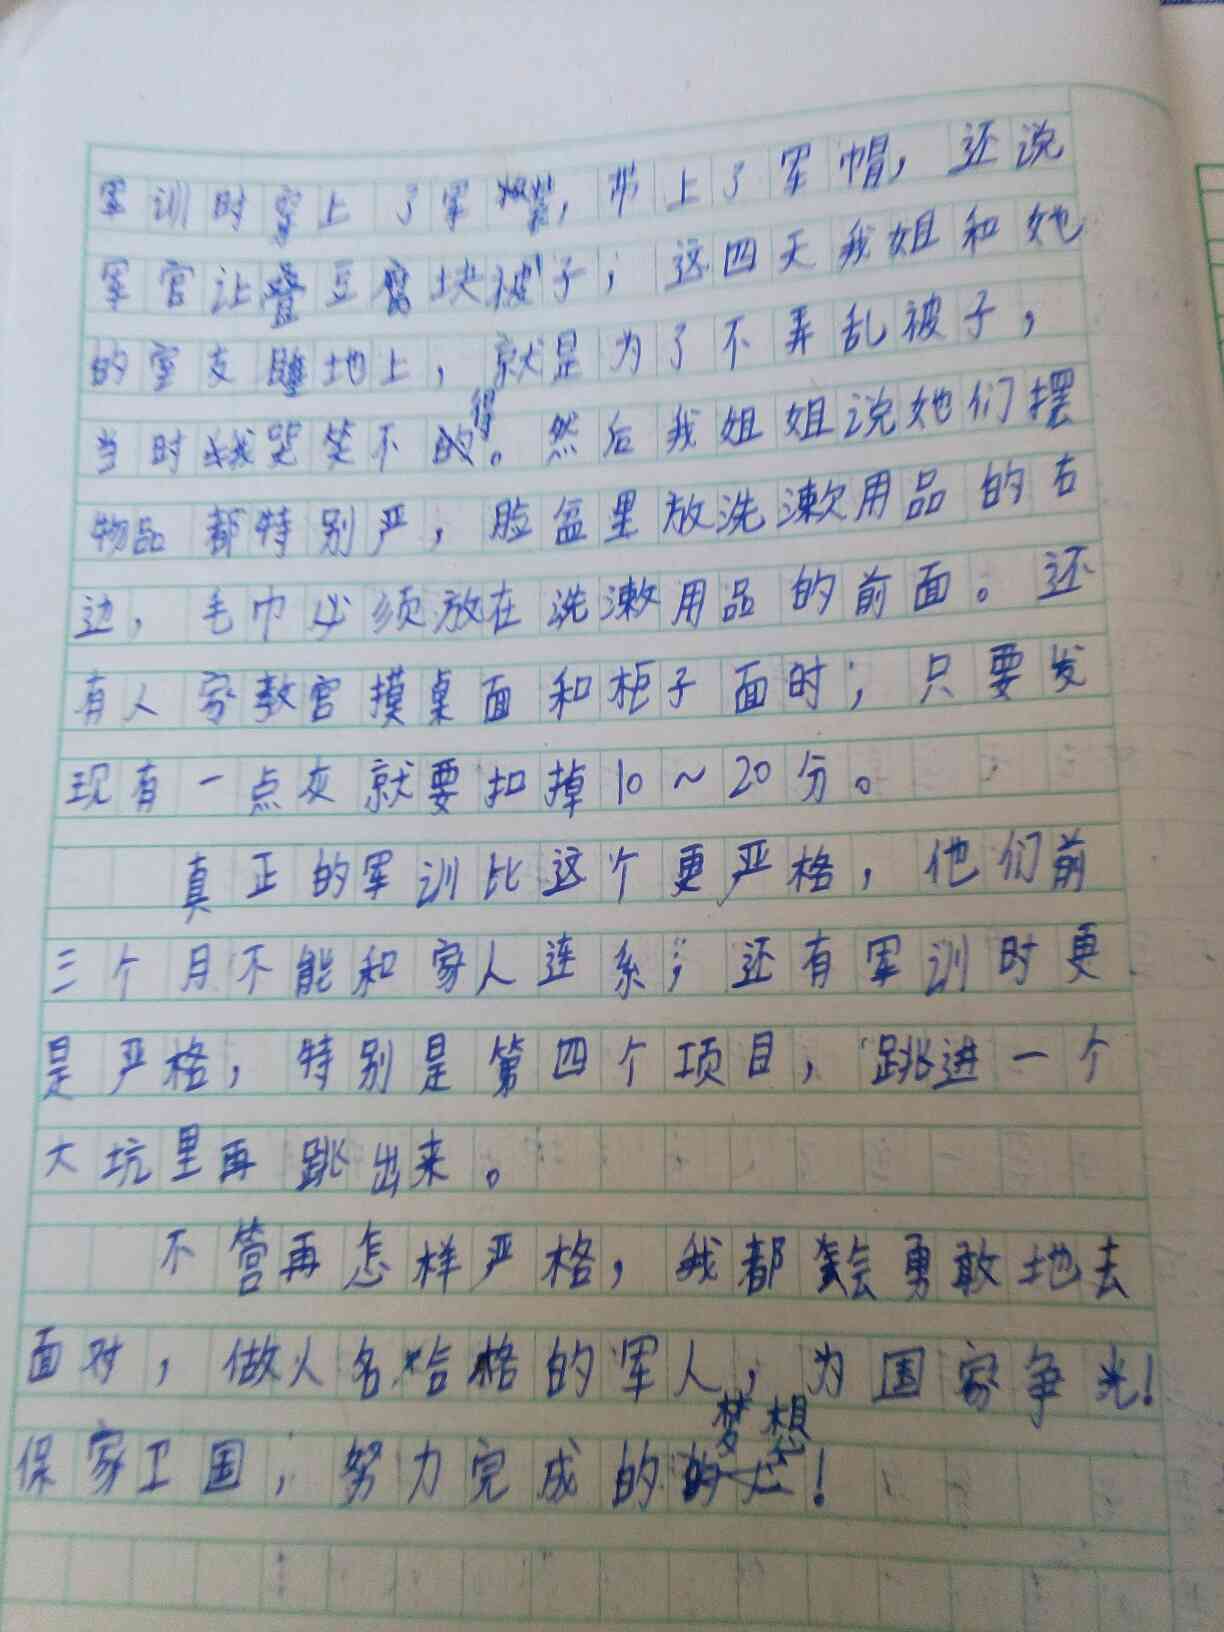 军训时穿上了军装，带上了军帽，还说
军官让叠豆腐块被子；这四天我姐和她
的室友睡地上，就是为了不弄乱被子，
当时我哭笑不得。然后我姐姐说她们摆
物品都特别严，脸盆里放洗漱用品的右
边，毛巾必须放在洗漱用品的前面。还
有人家教官摸桌面和柜子面时；只要发
现有一点灰就要扣掉10～20分。
真正的军训比这个更严格，他们前
三个月不能和家人连系；还有军训时更
是严格，特别是第四个项目，跳进一个
大坑里再跳出来。
不管再怎样严格，我都会勇敢地去
面对，做人名合格的军人，为国家争光！
保家卫国，努力完成的梦想！